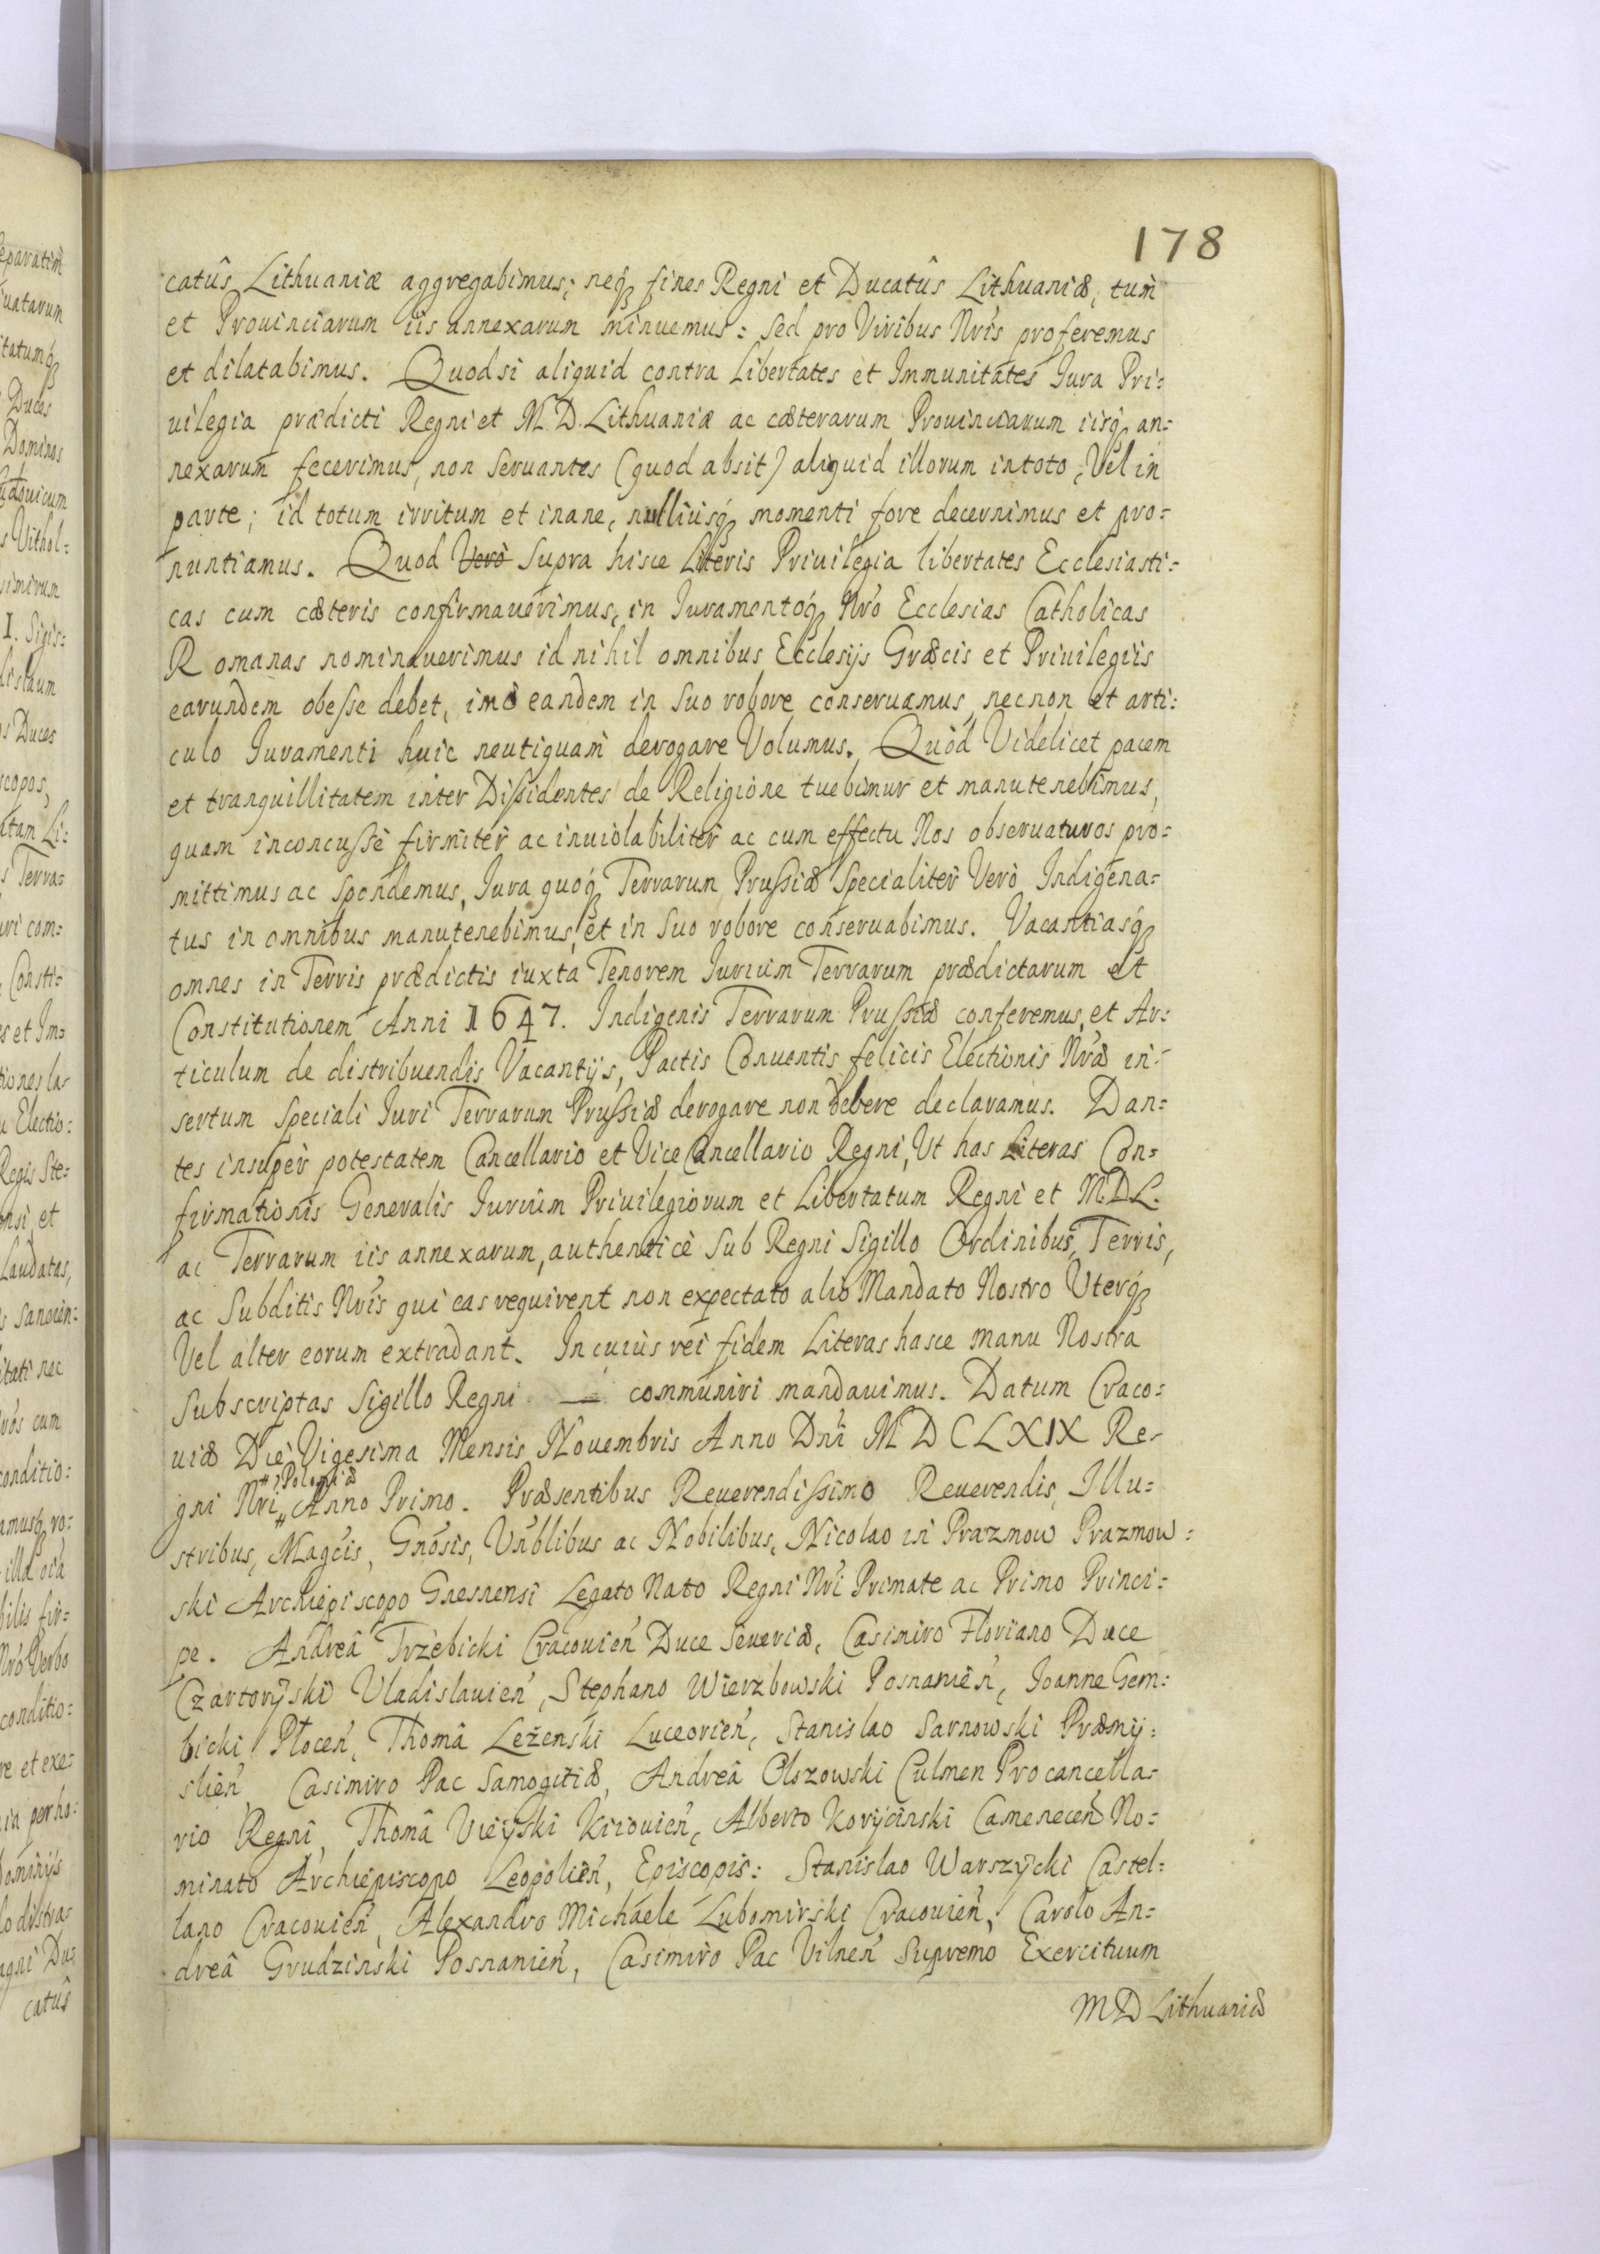 178
catûs Lithuaniæ aggregabimus; neq́ʒ fines Regni et Ducatûs Lithuaniæ, tum̀
et Prouinciarum iis annexarum minuemus: sed pro Viribus Nrı̃s proferemus
et dilatabimus. Quodsi aliquid contra Libertates et Immunitates Jura Pri=
uilegia prædicti Regni et M.D. Lithuaniæ ac cæterarum Prouinciarum iisq́ʒ an=
nexarum fecerimus, non Servantes (quod absit) aliquid illorum intoto, Vel in
parte; id totum irritum et inane, nulliusq́ʒ momenti fore decernimus et pro=
nuntiamus. Quod Verò Supra hisce Literis Priuilegia libertates Ecclesiasti=
cas cum cæteris confirmauerimus, in Juramentoq́ʒ Nr̃o Ecclesias Catholicas
Romanas nominauerimus id nihil omnibus Ecclesijs Græcis et Priuilegiis
earundem obesse debet, imò eandem in Suo robore conseruamus, necnon et arti=
culo Juramenti huic neutiquam̀ derogare Volumus. Quòd Videlicet pacem
et tranquillitatem inter Dissidentes de Religione tuebimur et manutenebimus,
quam inconcussè firmitèr ac inuiolabilitèr ac cum effectu Nos obseruaturos pro=
mittimus ac Spondemus, Jura quoq́ʒ Terrarum Prussiæ Specialitèr Verò Indigena=
tus in omnibus manutenebimus, et in Suo robore conseruabimus. Vacantiasq́ʒ
omnes in Terris prædictis iuxta Tenorem Jurium Terrarum prædictarum et
Constitutionem Anni 1647. Indigenis Terrarum Prussiæ conferemus, et Ar=
ticulum de distribuendis Vacantijs, Pactis Conuentis felicis Electionis Nr̃æ in=
sertum Speciali Juri Terrarum Prussiæ derogare non debere declaramus. Dan=
tes insupèr potestatem Cancellario et Vice Cancellario Regni, Vt has Literas Con=
firmationis Generalis Jurium Priuilegiorum et Libertatum Regni et M.D.L.
ac Terrarum iis annexarum, authenticè Sub Regni Sigillo Ordinibus, Terris,
ac Subditis Nrı̃s qui eas requirent non expectato alio Mandato Nostro Uterq́ʒ
Vel alter eorum extradant. In cuius rei fidem Literas hasce manu Nostra
Subscriptas Sigillo Regni — communiri mandauimus. Datum Craco=
uiæ Die Vigesima Mensis Nouembris Anno Dnı̃ MDCLXIX Re=
gni Nrı̃ # Poloniæ # Anno Primo. Præsentibus Reuerendissimo Reuerendis, Illu=
stribus, Magc̃is, Gnõsis, Vñblibus ac Nobilibus, Nicolao in Prazmow Prazmow=
ski Archiepiscopo Gnesnensi Legato Nato Regni Nrı̃ Primate ac Primo Princi=
pe. Andreâ Trzebicki Cracouieñ Duce Seueriæ, Casimiro Floriano Duce
Czartoryski Vladislauieñ, Stephano Wierzbowski Posnanieñ, Joanne Gem=
bicki Płoceñ, Thomâ Leżenski Luceorieñ, Stanislao Sarnowski Præmij=
slieñ, Casimiro Pac Samogitiæ, Andreâ Olszowski Culmen Procancella=
rio Regni, Thomâ Uieyski Kiiouieñ, Alberto Korycinski Cameneceñ No=
minato Archiepiscopo Leopolieñ, Episcopis: Stanislao Warszycki Castel=
lano Cracouieñ, Alexandro Michaele Lubomirski Cracouieñ, Carolo An=
dreâ Grudzinski Posnanieñ, Casimiro Pac Vilneñ Supremo Exercituum
MD Lithuaniæ